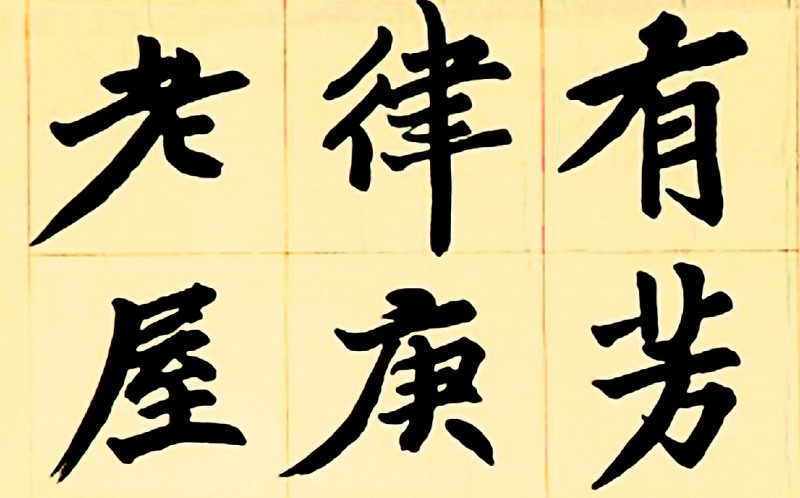 有芳
律庚
老屋